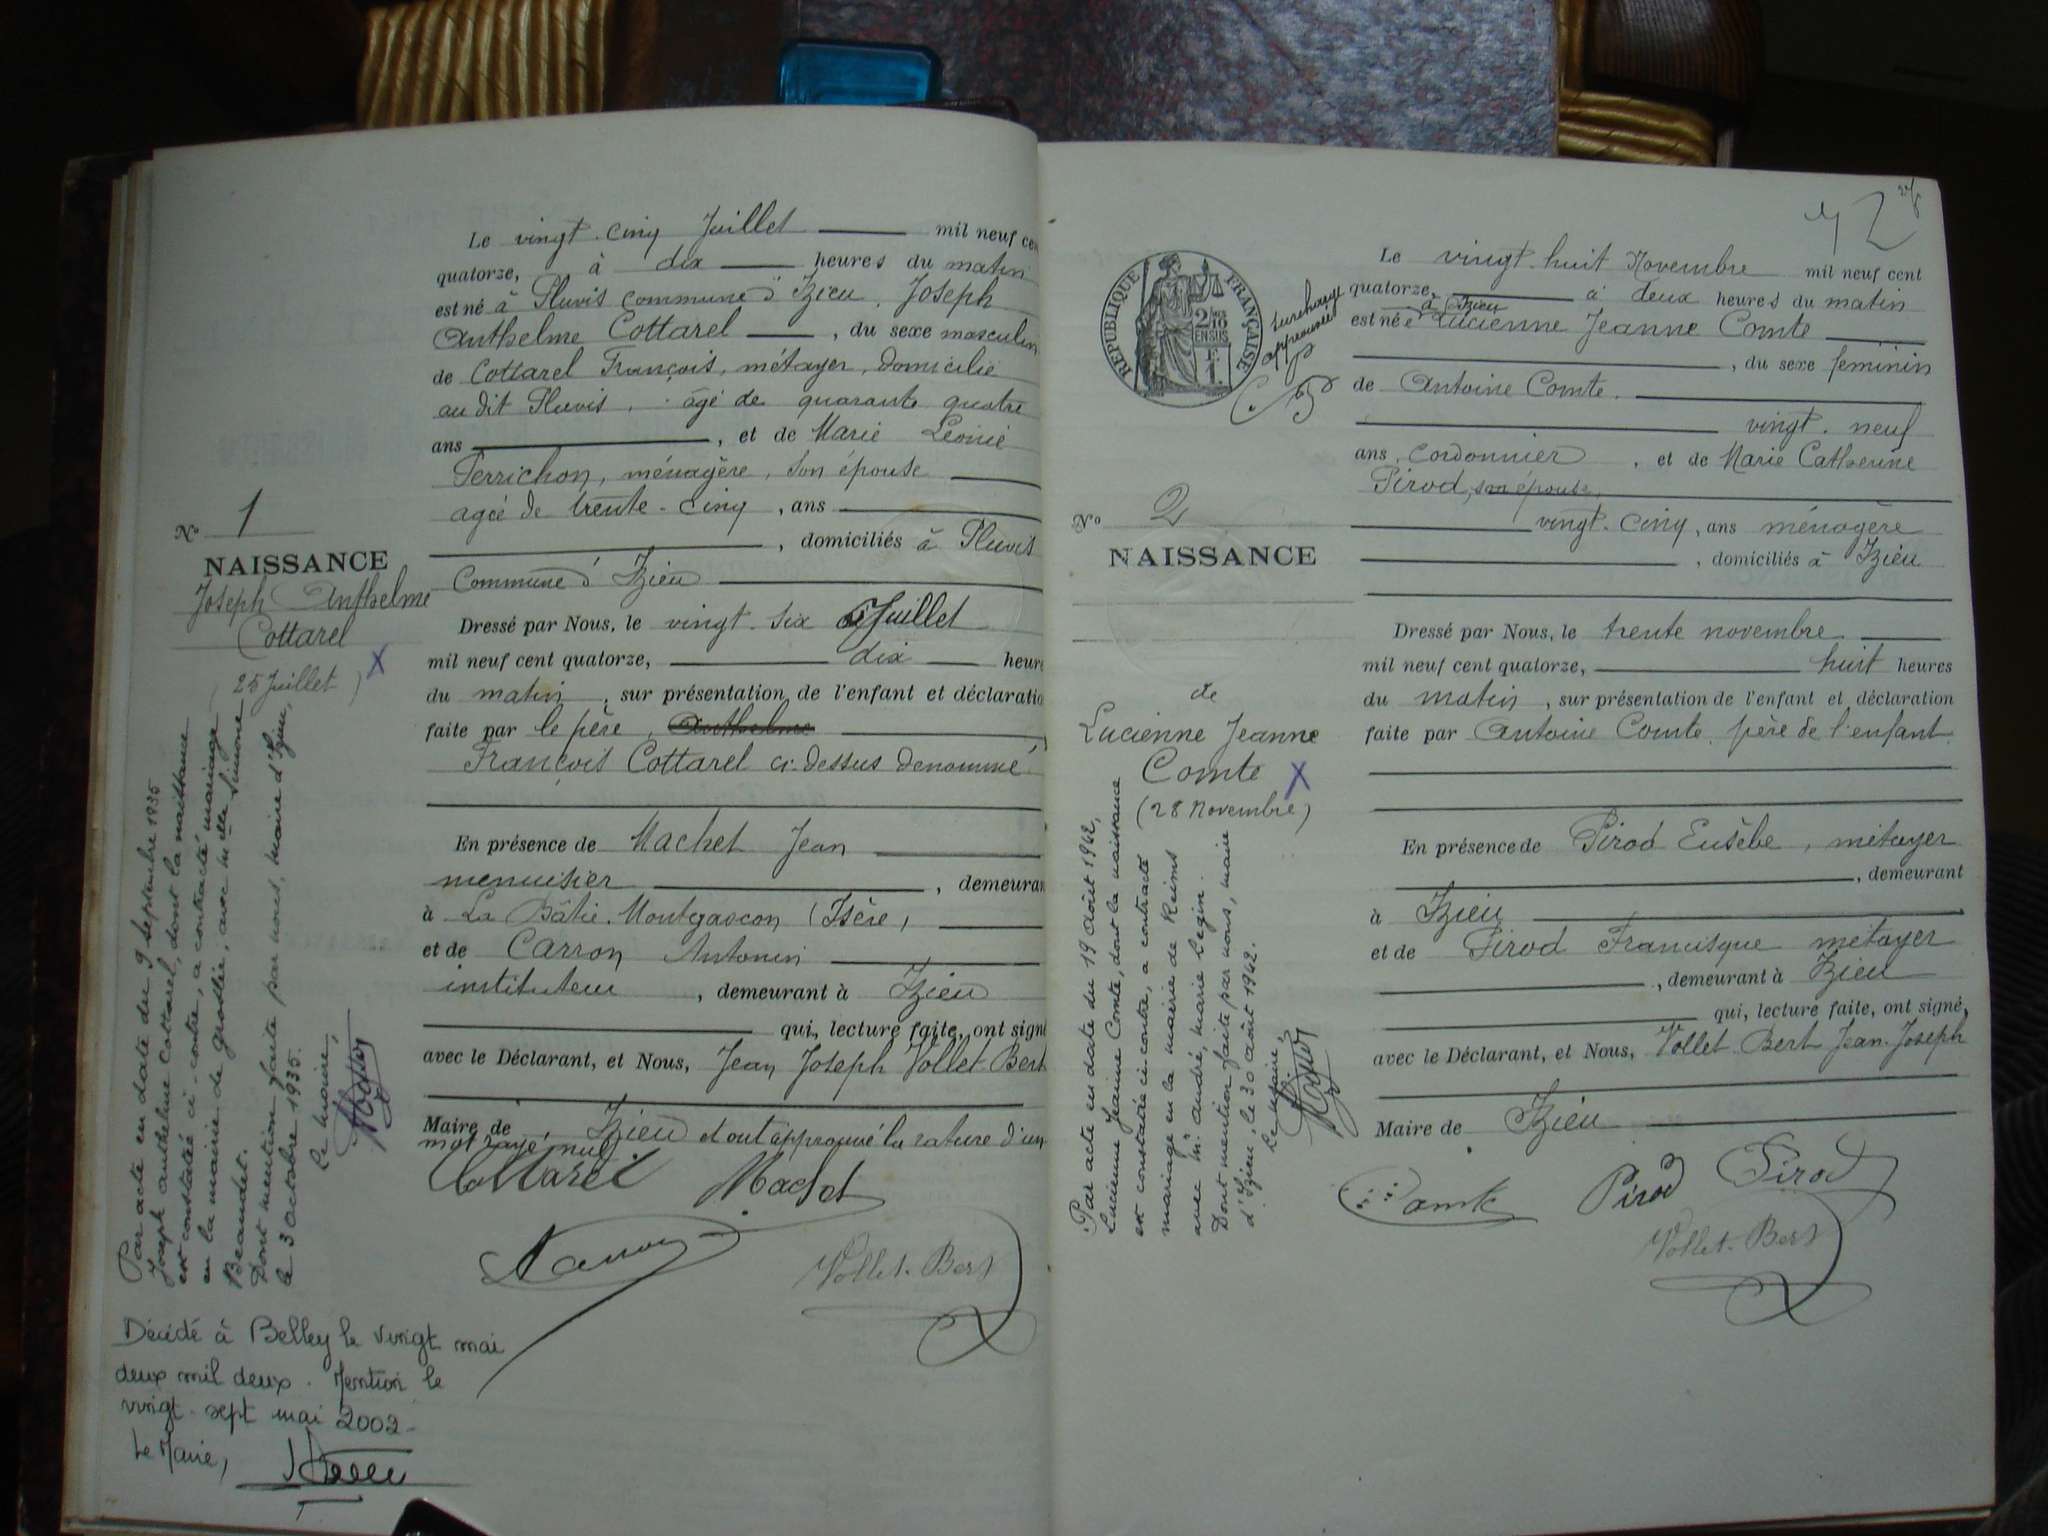 Le vingt-cinq Juillet mil neuf cen
quatorze, à dix heures du matin
est né à Pluvis commune d'Izieu, Joseph
Anthelme Cottarel, du sexe masculin
de Cottarel François, métayer, domicilié
au dit Pluvis, âgé de quarante quatre
ans, et de Marie Léonie
Perrichon, ménagère, son épouse
agée de trente-cinq, ans
, domiciliés à Pluvis
Commune d'Izieu
Dressé par Nous, le vingt-six Juillet
mil neuf cent quatorze, dix heure
du matin, sur présentation de l'enfant et déclaratio
faite par le père, Anthelme
François Cottarel ci-dessus dénommé
En présence de Machet Jean
menuisier, demeuran
à La Bâtie-Montgascon (Isère)
et de Carron Antonin
instituteur, demeurant à Izieu
qui, lecture faite, ont sign
avec le Déclarant, et Nous, Jean Joseph Vollet-Bert
Maire de Izieu et ont approuvé la rature d'un
mot rayé nul
Cottarel Machet
Vollet-Bert
N° 1
NAISSANCE
Joseph Anthelme
Cottarel
(25 Juillet)
X
Par acte en date du 9 septembre 1935
Joseph Anthelme Cottarel, dont la naissance
est constatée ci-contre, a contracté mariage
en la mairie de Groslée, avec Melle Simone
Beaudet.
Dont mention faite par nous, maire d'Izieu,
le 3 octobre 1935.
Le maire,
Décédé à Belley le vingt mai
deux mil deux. Mention le
vingt-sept mai 2002.
Le Maire,
2
REPUBLIQUE FRANÇAISE
2/10
EN SUS
surcharge
approuvée
Le vingt-huit Novembre mil neuf cent
quatorze, à deux heures du matin
à Izieu
est née Lucienne Jeanne Comte
, du sexe féminin
de Antoine Comte.
vingt-neuf
ans, cordonnier, et de Marie Catherine
Pirod, son épouse,
vingt-cinq, ans ménagère
, domiciliés à Izieu
Dressé par Nous, le trente novembre
mil neuf cent quatorze, huit heures
du matin, sur présentation de l'enfant et déclaration
faite par Antoine Comte, père de l'enfant
En présence de Pirod Eusèbe, métayer
, demeurant
à Izieu
et de Pirod Francisque métayer
, demeurant à Izieu
qui, lecture faite, ont signé,
avec le Déclarant, et Nous, Vollet-Bert Jean-Joseph
Maire de Izieu
Pirod Pirod
Vollet-Bert
N° 2
NAISSANCE
de
Lucienne Jeanne
Comte
X
(28 Novembre)
Par acte en date du 19 août 1942,
Lucienne Jeanne Comte, dont la naissance
est constatée ci-contre, a contracté
mariage en la mairie de Reims
avec Mr André, Marie Legin.
Dont mention faite par nous, maire
d'Izieu, le 30 août 1942.
Le maire,